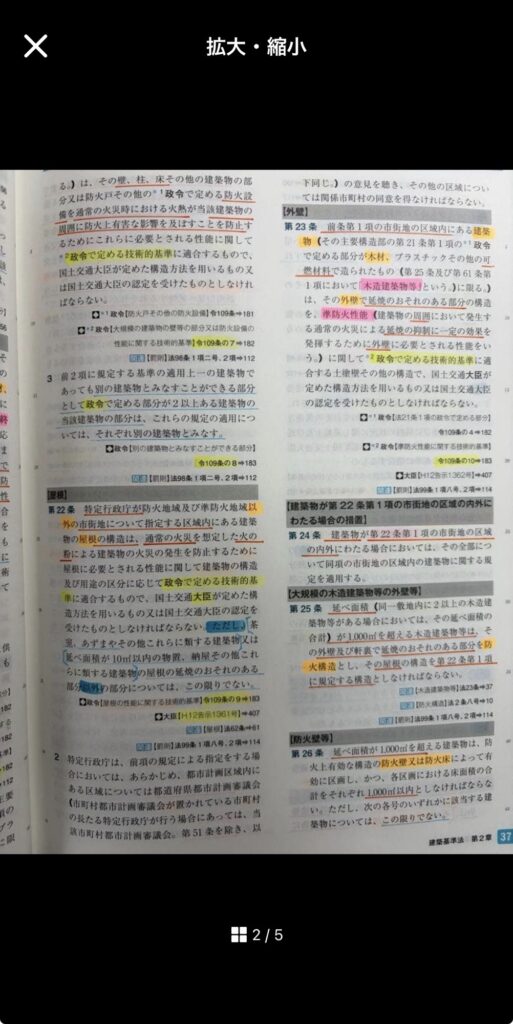 拡大・縮小
る。）は、その壁、柱、床その他の建築物の部
分又は防火戸その他の*1政令で定める防火設
備を通常の火災時における火熱が当該建築物の
周囲に防火上有害な影響を及ぼすことを防止す
るためにこれらに必要とされる性能に関して
*2政令で定める技術的基準に適合するもので、
国土交通大臣が定めた構造方法を用いるもの又
は国土交通大臣の認定を受けたものとしなけれ
ばならない。
*1政令[防火戸その他の防火設備]令109条⇒181
*2政令[大規模の建築物の壁等の部分又は防火設備の
性能に関する技術的基準]令109条の7⇒182
関連[罰則]法98条1項二号、2項⇒112
3 前2項に規定する基準の適用上一の建築物で
あっても別の建築物とみなすことができる部分
として政令で定める部分が2以上ある建築物の
当該建築物の部分は、これらの規定の適用につ
いては、それぞれ別の建築物とみなす。
政令[別の建築物とみなすことができる部分]
令109条の8⇒183
関連[罰則]法98条1項二号、2項⇒112
【屋根】
第22条 特定行政庁が防火地域及び準防火地域以
外の市街地について指定する区域内にある建築
物の屋根の構造は、通常の火災を想定した火の
粉による建築物の火災の発生を防止するために
屋根に必要とされる性能に関して建築物の構造
及び用途の区分に応じて政令で定める技術的基
準に適合するもので、国土交通大臣が定めた構
造方法を用いるもの又は国土交通大臣の認定を
受けたものとしなければならない。ただし、茶
室、あずまやその他これらに類する建築物又は
延べ面積が10㎡以内の物置、納屋その他これ
らに類する建築物の屋根の延焼のおそれのある
部分以外の部分については、この限りでない。
政令[屋根の性能に関する技術的基準]令109条の9⇒183
大臣[H12告示1361号]⇒407
関連[屋根]法62条⇒61
関連[罰則]法99条1項八号、2項⇒114
2 特定行政庁は、前項の規定による指定をする場
合においては、あらかじめ、都市計画区域内に
ある区域については都道府県都市計画審議会
（市町村都市計画審議会が置かれている市町村
の長たる特定行政庁が行う場合にあっては、当
該市町村都市計画審議会。第51条を除き、以
下同じ。）の意見を聴き、その他の区域につい
ては関係市町村の同意を得なければならない。
【外壁】
第23条 前条第1項の市街地の区域内にある建築
物（その主要構造部の第21条第1項の*1政令
で定める部分が木材、プラスチックその他の可
燃材料で造られたもの（第25条及び第61条第
1項において「木造建築物等」という。）に限る。）
は、その外壁で延焼のおそれのある部分の構造
を、準防火性能（建築物の周囲において発生す
る通常の火災による延焼の抑制に一定の効果を
発揮するために外壁に必要とされる性能をい
う。）に関して*2政令で定める技術的基準に適
合する土塗壁その他の構造で、国土交通大臣が
定めた構造方法を用いるもの又は国土交通大臣
の認定を受けたものとしなければならない。
*1政令[法21条1項の政令で定める部分]
令109条の4⇒182
*2政令[準防火性能に関する技術的基準]
令109条の10⇒183
大臣[H12告示1362号]⇒407
関連[罰則]法99条1項八号、2項⇒114
【建築物が第22条第1項の市街地の区域の内外に
わたる場合の措置】
第24条 建築物が第22条第1項の市街地の区域
の内外にわたる場合においては、その全部につ
いて同項の市街地の区域内の建築物に関する規
定を適用する。
【大規模の木造建築物等の外壁等】
第25条 延べ面積（同一敷地内に2以上の木造建
築物等がある場合においては、その延べ面積の
合計）が1,000㎡を超える木造建築物等は、そ
の外壁及び軒裏で延焼のおそれのある部分を防
火構造とし、その屋根の構造を第22条第1項
に規定する構造としなければならない。
関連[木造建築物等]法23条⇒37
関連[防火構造]法2条八号⇒10
関連[罰則]法99条1項八号、2項⇒114
【防火壁等】
第26条 延べ面積が1,000㎡を超える建築物は、防
火上有効な構造の防火壁又は防火床によって有
効に区画し、かつ、各区画における床面積の合
計をそれぞれ1,000㎡以内としなければならな
い。ただし、次の各号のいずれかに該当する建
築物については、この限りでない。
建築基準法 第2章 37
2 / 5